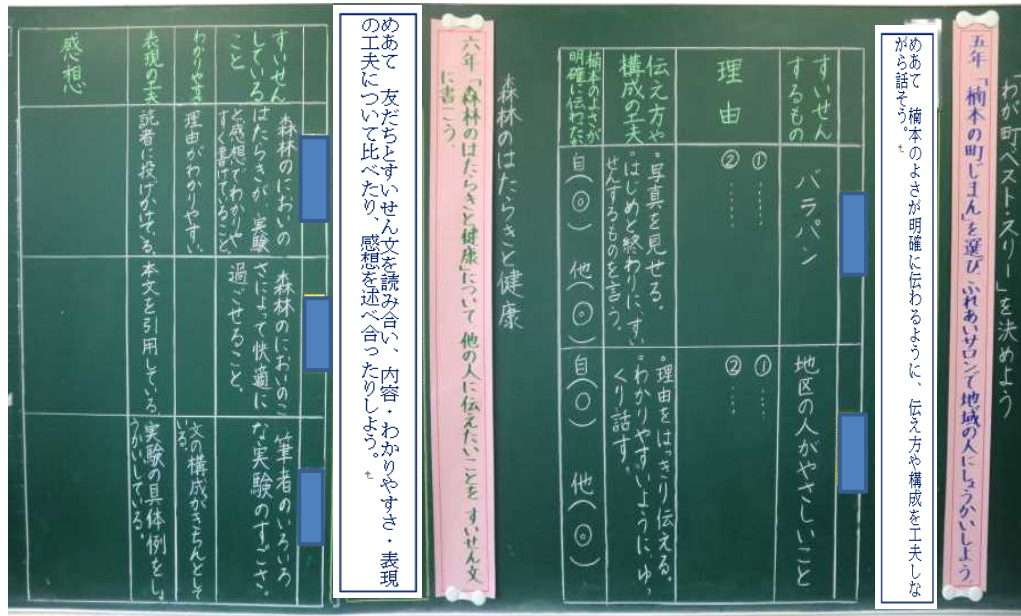 「わが町ベスト・スリー」を決めよう
五年 「楠本の町じまん」を選び、ふれあいサロンで地域の人にしょうかいしよう。
めあて 楠本のよさが明確に伝わるように、伝え方や構成を工夫しな
がら話そう。
すいせん
するもの
バラパン
地区の人がやさしいこと
理由
①……
②……
①……
②……
伝え方や
構成の工夫
・写真を見せる。
・はじめと終わりに、すい
せんするものを言う。
・理由をはっきり伝える。
・わかりやすいように、ゆっ
くり話す。
楠本のよさが
明確に伝わったか
自(◎) 他(◎)
自(○) 他(◎)
森林のはたらきと健康
六年 「森林のはたらきと健康」について 他の人に伝えたいことを、すいせん文
に書こう。
めあて 友だちとすいせん文を読み合い、内容・わかりやすさ・表現
の工夫について比べたり、感想を述べ合ったりしよう。
すいせん
している
こと
森林のにおいの
はたらきが、実験
と感想でわかりや
すく書けていること。
森林のにおいのこ
さによって快適に
過ごせること。
筆者のいろいろ
な実験のすごさ。
わかりやすさ
理由がわかりやすい。
文の構成がきちんとして
いる。
表現の工夫
読者に投げかけている。
本文を引用している。
実験の具体例をしょ
うかいしている。
感想